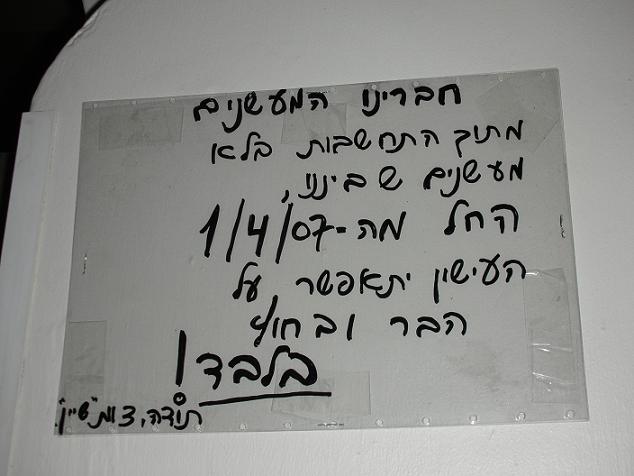 חברינו המעשנים
מתוך התחשבות בלא
מעשנים שביננו,
החל מה-1/4/07
העישון יתאפשר על
הבר ובחוץ
בלבד!
תודה, צוות "שיין".